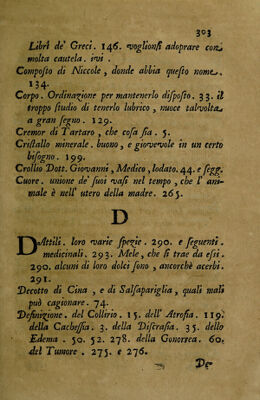 303
Libri de' Greci. 146. voglionsi adoprare con
molta cautela. ivi.
Composto di Niccole, donde abbia questo nome.
134.
Corpo. Ordinazione per mantenerlo disposto. 33. il
troppo studio di tenerlo lubrico, nuoce talvolta
a gran segno. 129.
Cremor di Tartaro, che cosa sia. 5.
Cristallo minerale. buono, e giovevole in un certo
bisogno. 199.
Crollio Dott. Giovanni, Medico, lodato. 44. e segg.
Cuore. unione de' suoi vasi nel tempo, che l' ani-
male è nell' utero della madre. 265.
D
DAttili. loro varie spezie. 290. e seguenti.
medicinali. 293. Mele, che si trae da essi.
290. alcuni di loro dolci sono, ancorchè acerbi.
291.
Decotto di Cina, e di Salsapariglia, quali mali
può cagionare. 74.
Definizione. del Collirio. 15. dell' Atrofia. 119.
della Cachessia. 3. della Discrasia. 35. dello
Edema. 50. 52. 278. della Gonorrea. 60.
del Tumore. 275. e 276.
De-